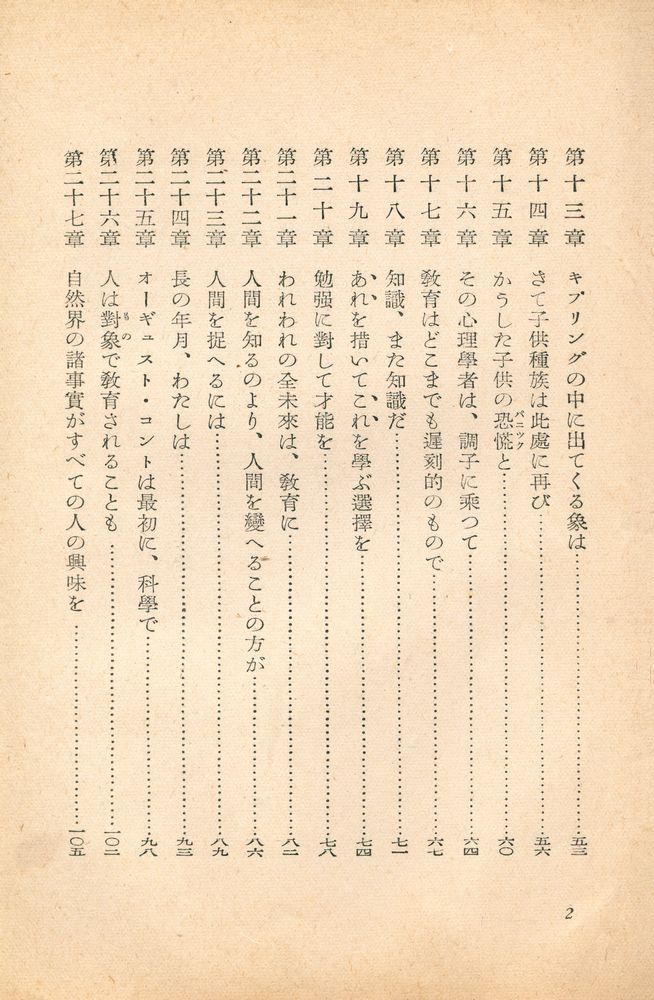 第十三章 キプリングの中に出てくる象は……五三
第十四章 さて子供種族は此處に再び……五六
第十五章 かうした子供の恐慌と……六〇
パニック
第十六章 その心理學者は、調子に乘つて……六四
第十七章 敎育はどこまでも遲刻的のもので……六七
第十八章 知識、また知識だ……七一
第十九章 あれを措いてこれを學ぶ選擇を……七四
第二十章 勉强に對して才能を……七八
第二十一章 われわれの全未來は、敎育に……八二
第二十二章 人間を知るのより、人間を變へることの方が……八六
第二十三章 人間を捉へるには……八九
第二十四章 長の年月、わたしは……九三
第二十五章 オーギュスト・コントは最初に、科學で……九八
第二十六章 人は對象で敎育されることも……一〇二
もの
第二十七章 自然界の諸事實がすべての人の興味を……一〇五
2